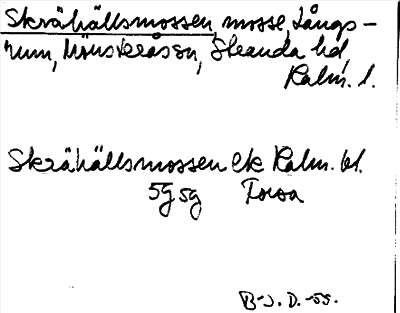 Skrähällsmossen, mosse, Långs-
rum, Mönsterås sn, Stranda hd,
Kalm. l.
Skrähällsmossen ek Kalm. bl.
5G 5g Torsa
B-J. D. -55.